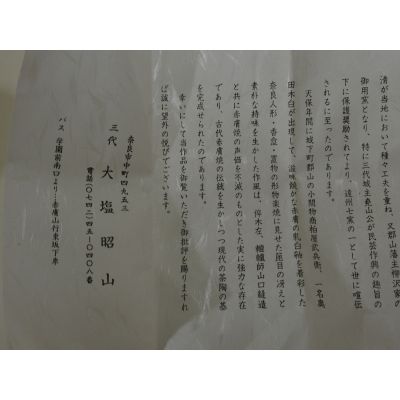 清が当地において種々工夫を重ね、又郡山藩主柳沢家の
御用窯となり、特に三代城主堯山公が民芸作興の趣旨の
下に保護奨励されてより、遠州七窯の一として世に喧伝
されるに至ったのであります。
天保年間に城下町郡山の小間物商柏屋武兵衛、一名奥
田木白が出現して、滋味饒かな赤膚の乳白釉を着彩した
奈良人形・香盒・置物の形物楽焼に見せた箆目の冴えと
素朴な持味を生かした作風は、
と共に赤膚焼の声価を不滅のものとした実に強力な存在
であり、古代赤膚焼の伝統を生かしつつ現代の茶陶の基
を完成せられたのであります。
幸いにして当作品を御覧いただき御批評を賜りますれ
ば誠に望外の悦びでございます。
奈良市中町四九五三
三代 大塩昭山
電話(〇七四二)四五-〇四〇八番
バス 学園前南口より・赤膚山行東坂下車